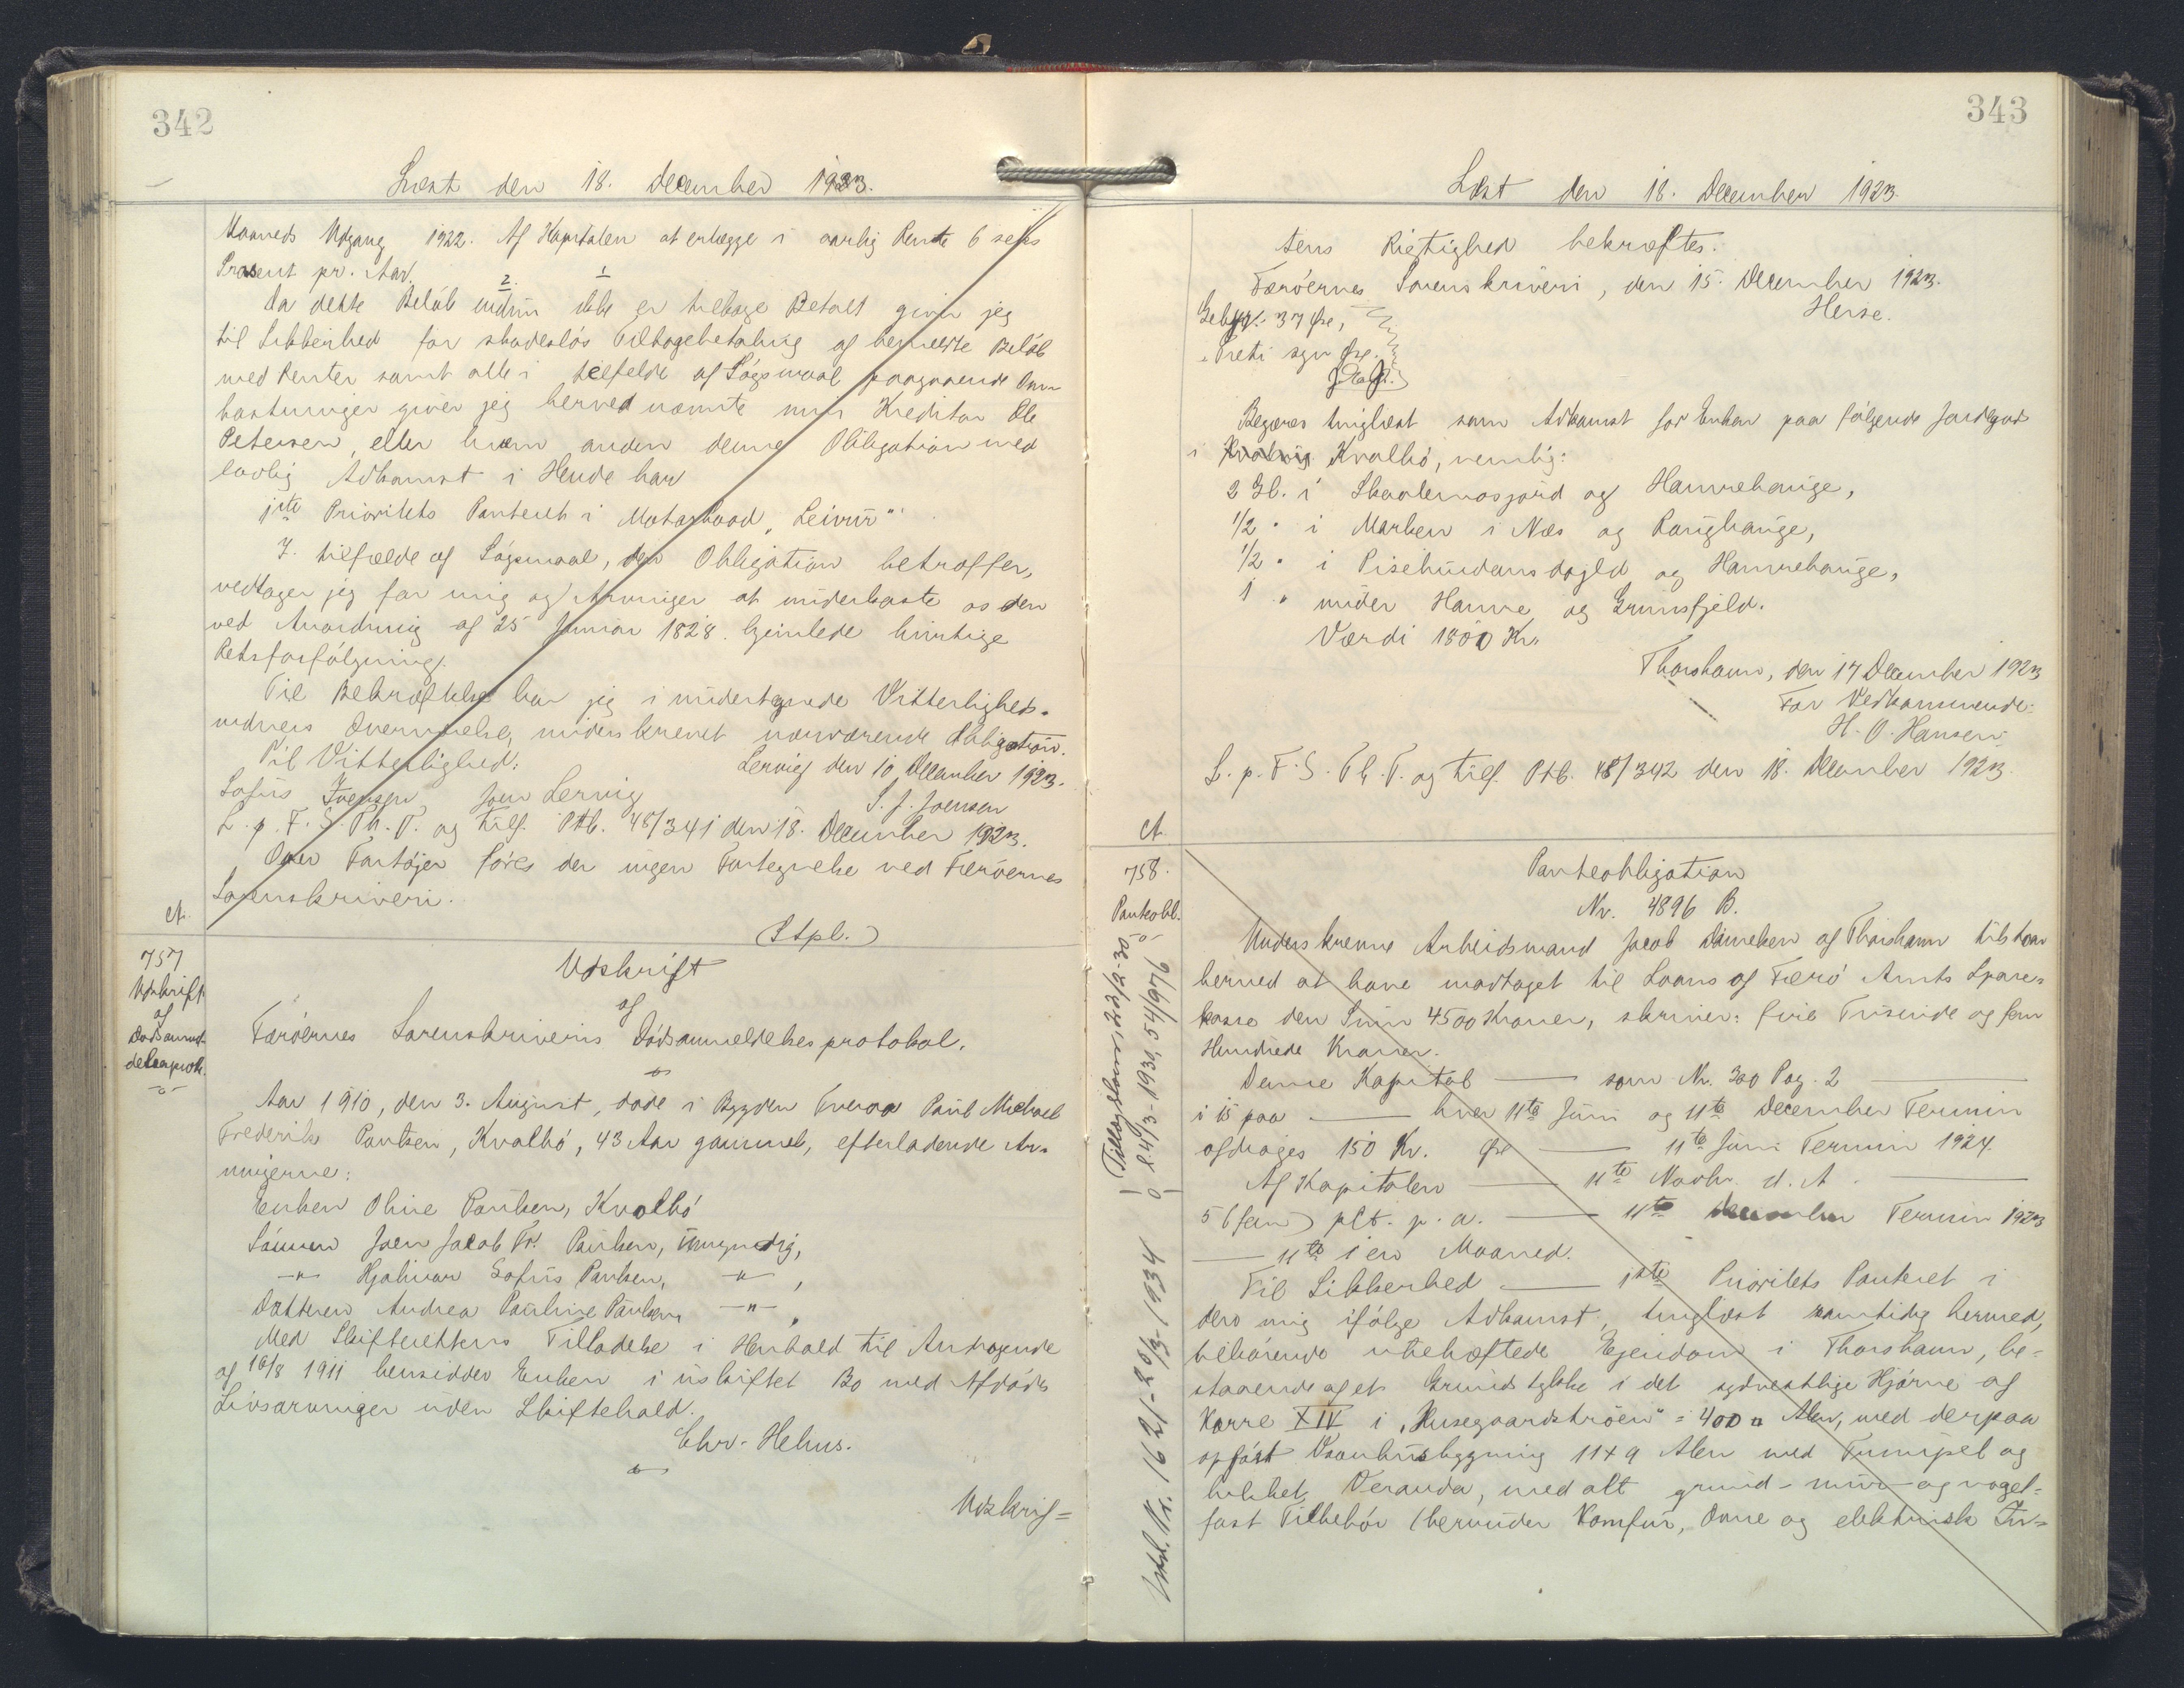 342
Læst den 18. December 1923.
Maaneds Udgang 1922. Af Kapitalen at erlægge i aarlig Rente 6 seks
Prosent pr. Aar.
2. 1
Da dette Beløb endnu ikke er tilbage Betalt giver jeg
til Sikkerhed for skadesløs Tilbagebetaling af bemeldte Beløb
med Renter samt alle i tilfelde af Søgsmaal paagaaende Om-
kostninger giver jeg herved nævnte min Kreditor Ole
Petersen, eller hvem anden denne Obligation med
lovlig Adkomst i Hende har
1ste Prioritets Panteret i Motorbaad „Leivur"
I. tilfælde af Søgsmaal, den Obligation betræffer,
vedtager jeg for mig og Arvinger at underkaste os den
ved Anordning af 25 Januar 1828. hjemlede hurtige
Retsforfølgning.
Til Bekræftelse har jeg i undertegnede Vitterligheds-
vidners Overværelse, underskrevet nærværende Obligation.
Til Vitterlighed: Lervig den 10. December 1923.
Sofus Joensen Joen Lervig S. J. Joensen
L. p. F. S. Th. T. og tilf. Ptb. 48/341 den 18. December 1923.
Over Fartøjer føres der ingen Fortegnelse ved Færøernes
Sorenskriveri.
(Stpl.)
A.
757
Udskrift
af
Dødsanmel-
delsesprot.
-o-
Udskrift
af
Færøernes Sorenskriveris Dødsanmeldelsesprotokol.
Aar 1910, den 3. August, døde i Bygden Tveraa Poul Michael
Frederik Poulsen, Kvalbø, 43 Aar gammel, efterladende Ar-
vingerne:
Enken Oline Poulsen, Kvalbø
Sønnen Joen Jacob Fr. Poulsen, umyndig,
—"— Hjalmar Sofus Poulsen, —"—,
Datteren Andrea Pauline Poulsen —"—,
Med Skifterettens Tilladelse i Henhold til Andragende
af 10/8 1911 hensidder Enken i uskiftet Bo med Afdødes
Livsarvinger uden Skiftehold.
Chr. Helms.
Udskrif=
343
Læst den 18. December 1923.
tens Rigtighed bekræftes.
Færøernes Sorenskriveri, den 15. December 1923.
Heise.
Gebyr: 37 Øre,
Treti syv Øre.
Begæres tinglæst som Adkomst for Enken paa følgende Jordegods
i Kvalbø, nemlig:
2 Gl. i Skaalemosgjørd og Hamrehauge,
1/2 " i Marken i Næs og Roughauge,
1/2 " i Pisehuudansdagld og Hamrehauge,
1 " under Hamre og Grimsfjeld.
Værdi 1800 Kr.
Thorshavn, den 17 December 1923
For Vedkommende:
H. O. Hansen.
L. p. F. S. Th. T. og tilf. Ptb. 48/342 den 18. December 1923.
A.
758.
Panteobl.
-o-
Tillægslaan, 22/2-30
l. 4/3-1930, 54/976
Indl. Nr. 1621-20/3-1934
Panteobligation
Nr. 4896 B.
Underskrevne Arbeidsmand Jacob Danielsen af Thorshavn tilstaar
herved at have modtaget til Laans af Færø Amts Spare-
kasse den Sum 4500 Kroner, skriver: fire Tusinde og fem
Hundrede Kroner.
Denne Kapital —— som Nr. 300 Pag. 2 ——
i 15 paa —— hver 11te Juni og 11te December Termin
afdrages 150 Kr. Øre —— 11te Juni Termin 1924.
Af Kapitalen —— 11te Novbr. d. A. ——
5 (fem) pCt. p. a. —— 11te December Termin 1923
—— 11te i en Maaned.
Til Sikkerhed —— 1ste Prioritets Panteret i
den mig ifølge Adkomst, tinglæst samtidig hermed,
tilhørende ubehæftede Ejendom i Thorshavn, be-
staaende af et Grundstykke i det sydvestlige Hjørne af
Karre XIV i „Husegaardstrøen" = 400 □ Alen, med derpaa
opført Vaanhusbygning 11 x 9 Alen med Frumspel og
lukket Veranda, med alt grund- mur- og nagel-
fast Tilbehør (herunder Komfur, Ovne og elektrisk In-